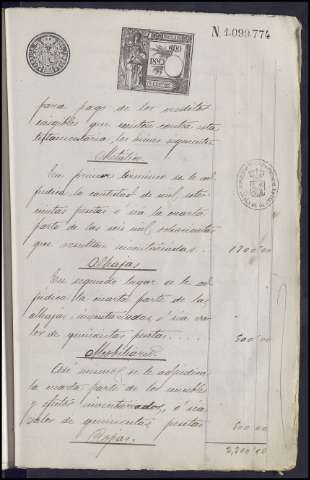 N 1.099.774
1882
para pago de los creditos
exigibles que existen contra esta
testamentaria, los bienes siguientes
Metálico
En primer termino se le ad
judica la cantidad de mil, sete
cientas pesetas o sea la cuarta
parte de las seis mil ochocientas
que resultan inventariadas. 1700'00
Alhajas
En segundo lugar se le ad
judica la cuarta parte de las
alhajas inventariadas o sea va
lor de quinientas pesetas.... 500'00
Mobiliario
Asi mismo se le adjudica
la cuarta parte de los muebles
y efectos inventariados, o sea
valor de quinientas pesetas 500'00
Ropas.